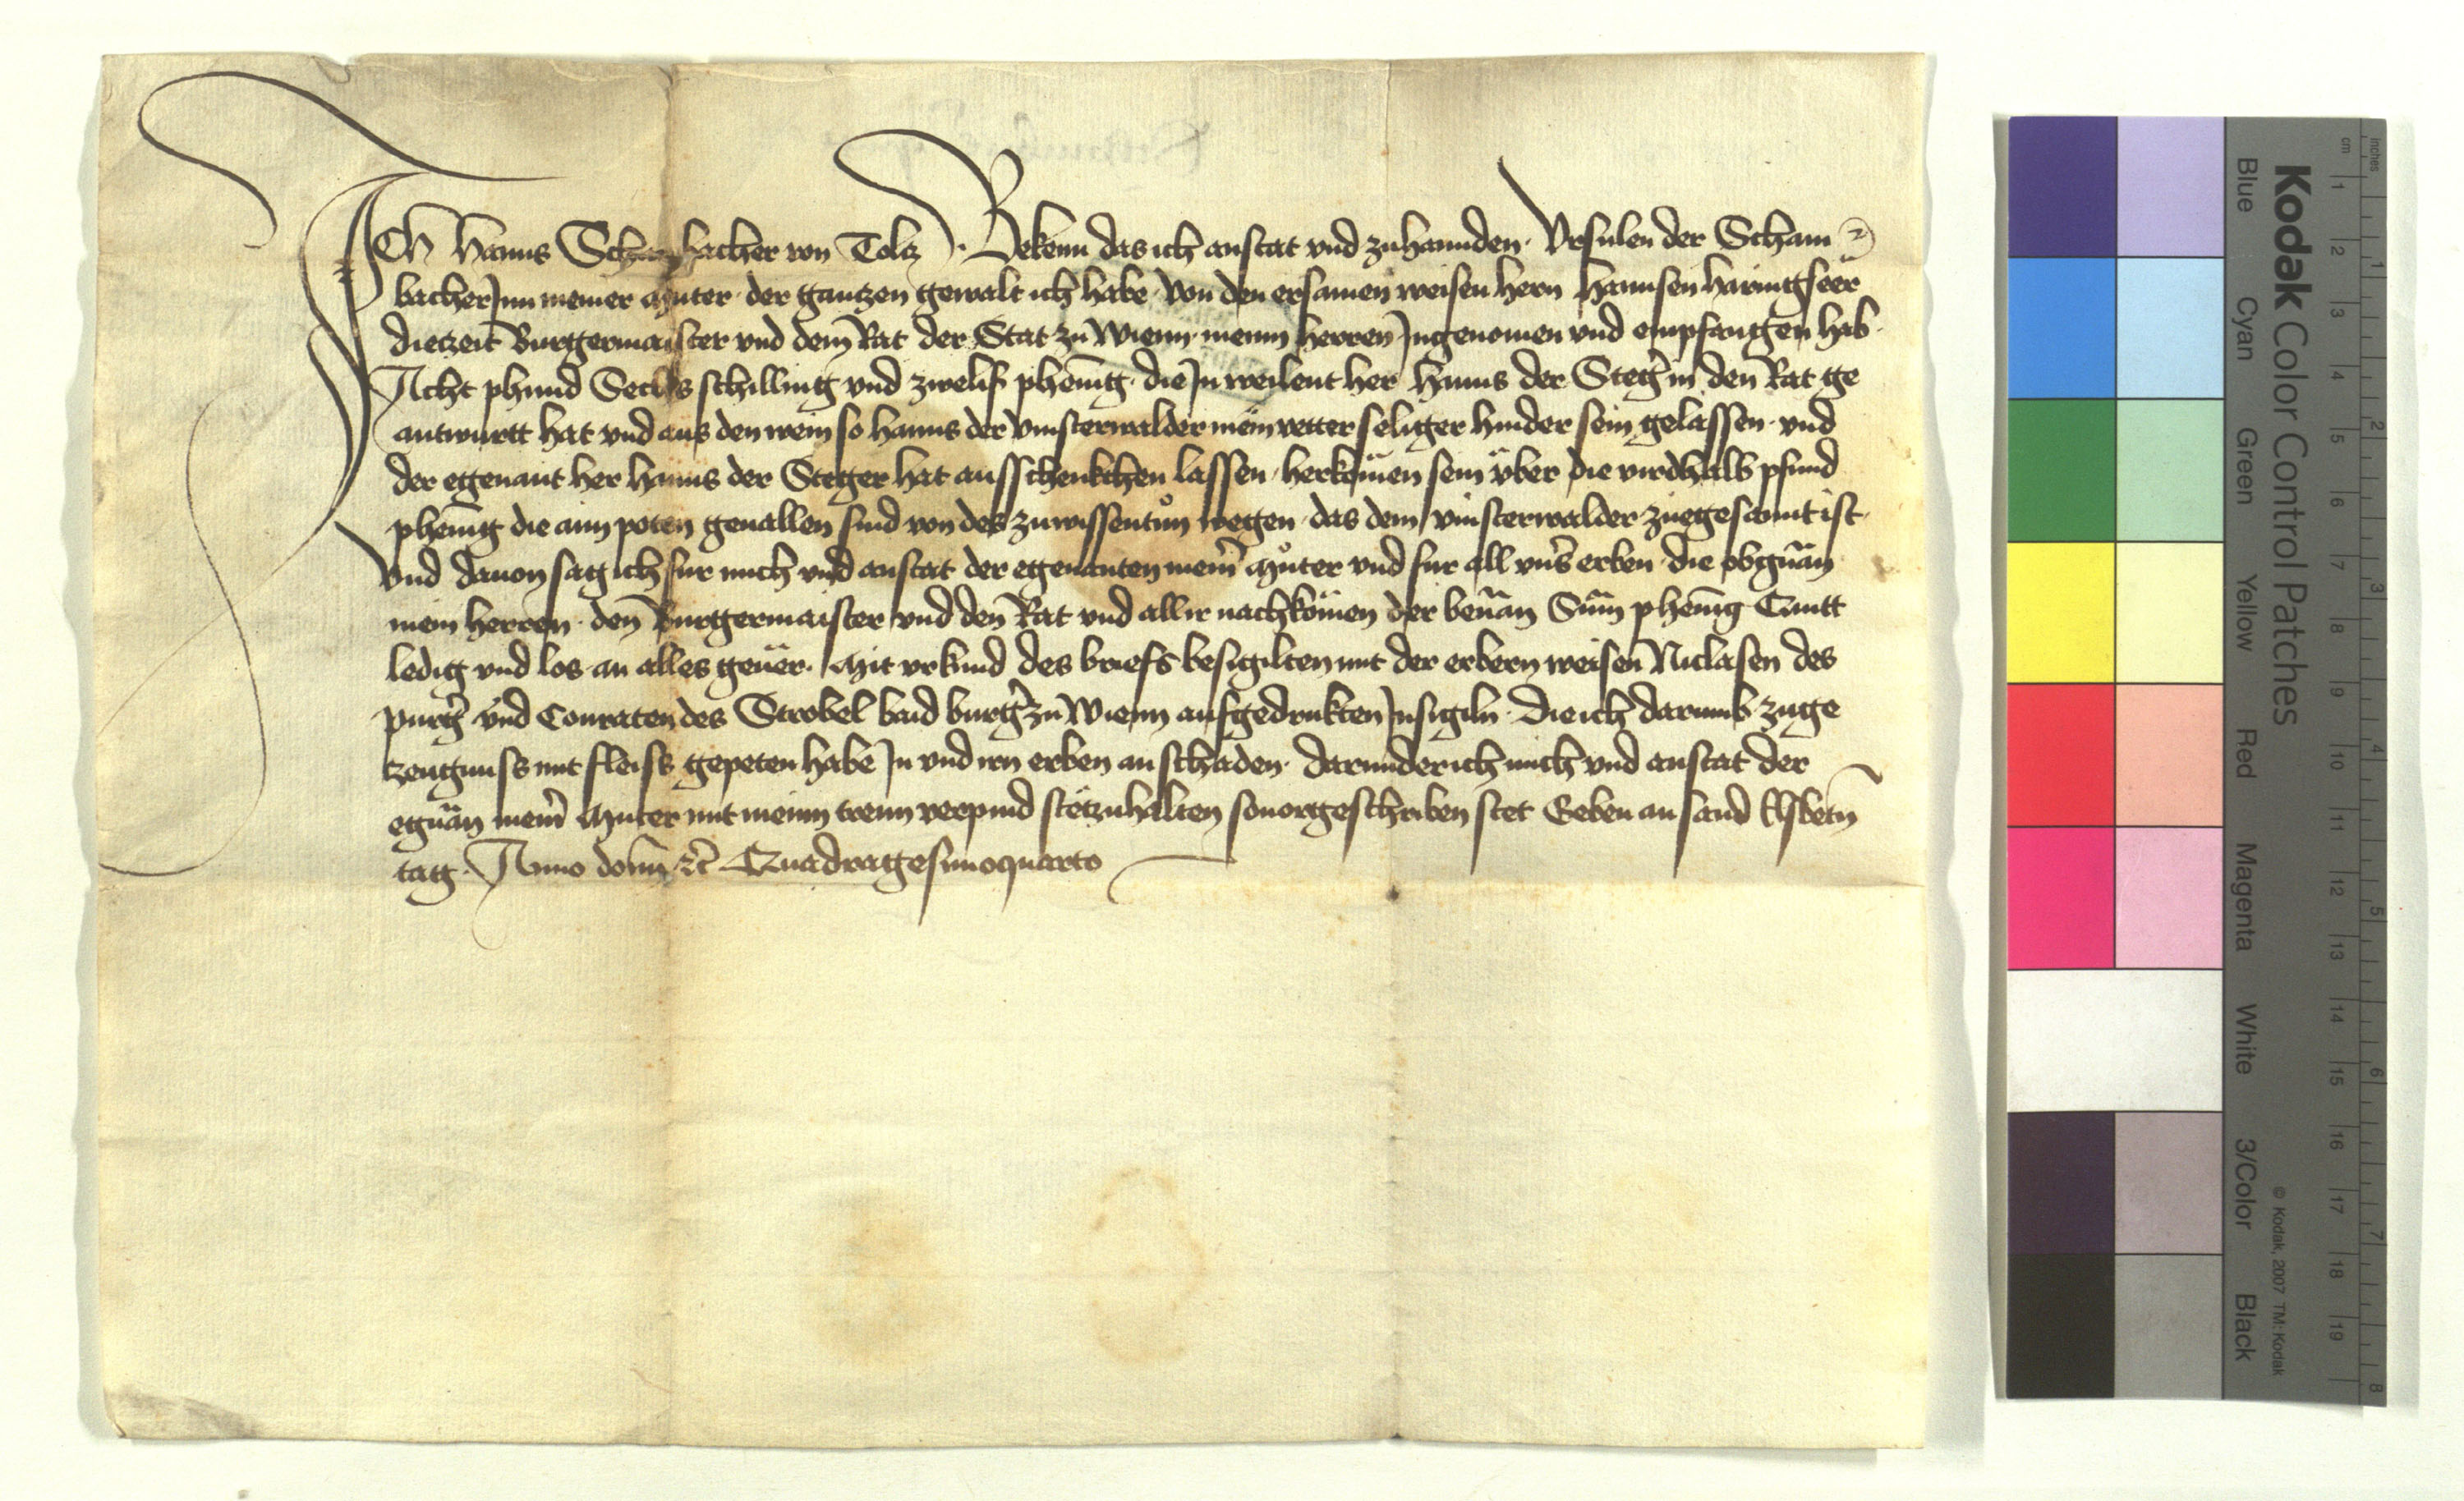 Ich Hanns Schampacher von Tolcz · Bekenn das ich anstat vnd zuhannden · Vrsulen der Scham
bacherJnn meiner Muter · der ganczen gewalt ich habe · Von den ersamen weisen hern Hannsen Haringseer
dieczeit Burgermaister vnd dem Rat der Stat zu Wienn · meinn herren Jngenomen vnd empfangen hab ·
Acht phund Sechs schilling vnd zwelif phenīg · die Jn weilent her Hanns der Steg̃ in den Rat ge
antwurtt hat vnd aus den wein so Hanns der vinsterwalder mein vetter seliger hinder sein gelassen · vnd
der egenant her Hanns der Steger hat ausschenkchen lassen · herkomen sein vber die virdhalb pfund
phenīg die aim poten geuallen sind von des zuwissentun wegen · das dem vinsterwalder zuegesannt ist ·
Vnd dauon sag ich fur mich vnd anstat der egenanten meinr̃ Muter vnd fur all vns̃ erben · die obgnan̄
mein herren · den Burgermaister vnd den Rat vnd all ir nachkomen der benan̄ Sum̄ phenīg · Quitt
ledig vnd los · an alles geuer · Mit vrkund des briefs besigilten mit der erbern weisen Niclasen des
purg̃ vnd Conraten des Strobel baid burg̃ zu Wienn aufgedrukten Jnsigiln · Die ich darumb zuge
zeugnuss mit fleiss gepeten habe Jn vnd irn erben an schaden · darunder ich mich vnd anstat der
egnan̄ meinr̃ Muter mit meinn trewn verpind stet zuhalten so uorgeschriben stet Geben an sand Elsbetn̄
tag · Anno domī ꝛc̃ Quadragesimoquarto
Kodak Color Control Patches
Blue Cyan Green Yellow Red Magenta White 3/Color Black
© Kodak, 2007 TM: Kodak
cm 1 2 3 4 5 6 7 8 9 10 11 12 13 14 15 16 17 18 19
inches 1 2 3 4 5 6 7 8